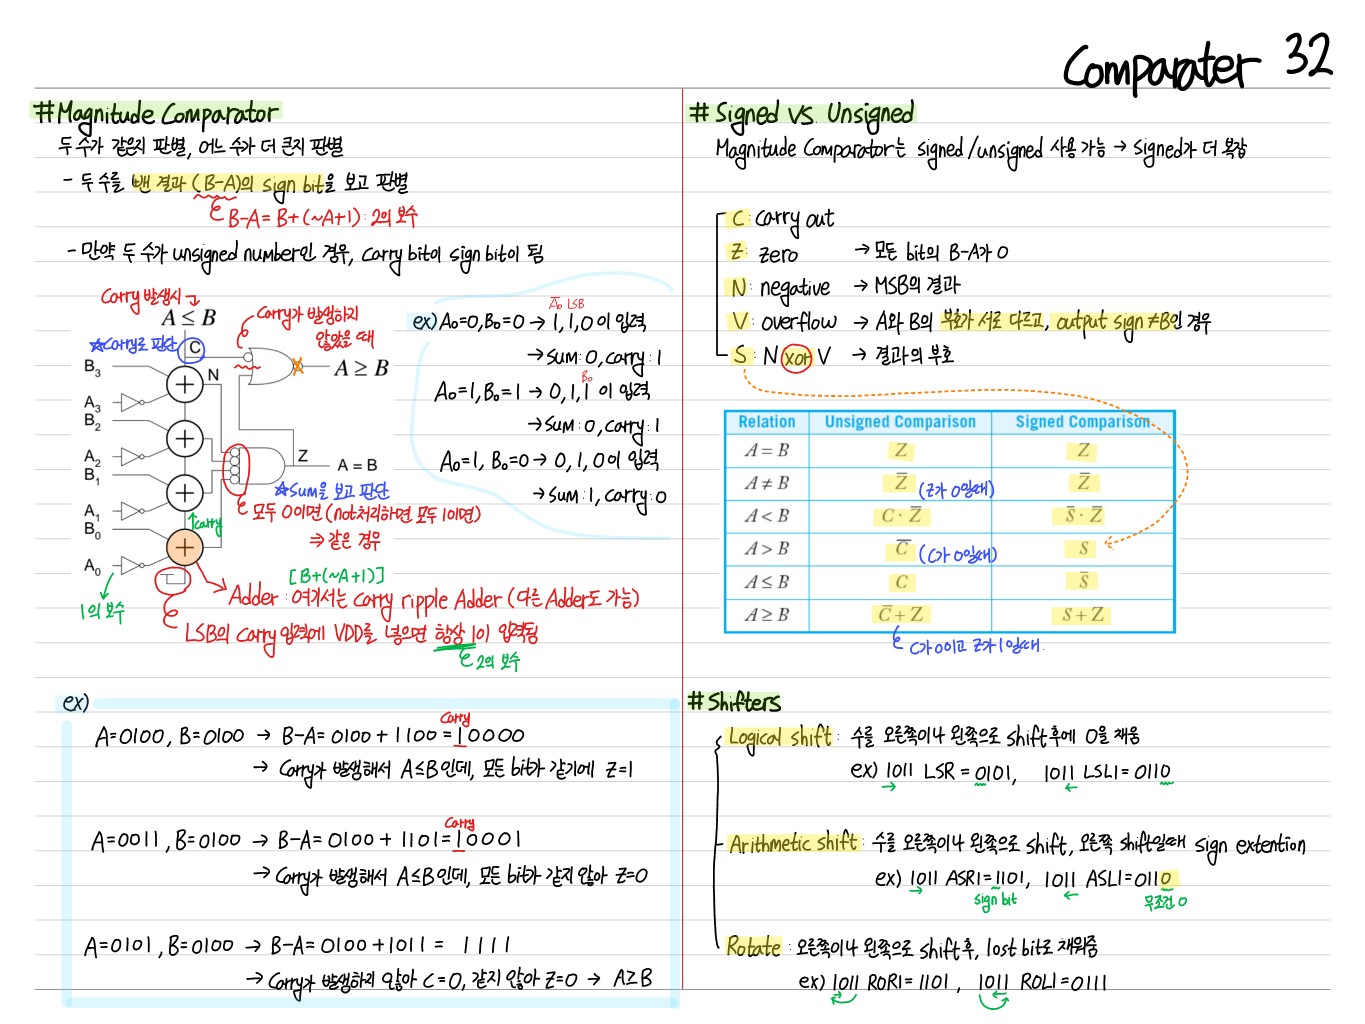 Comparater 32
#Magnitude Comparator
두 수가 같은지 판별, 어느 수가 더 큰지 판별
- 두 수를 뺀 결과 (B-A)의 sign bit을 보고 판별
B-A = B+(~A+1) : 2의 보수
- 만약 두 수가 unsigned number인 경우, carry bit이 sign bit이 됨
Carry 발생시
A ≤ B
☆Carry로 판단
C
Carry가 발생하지
않았을 때
A ≥ B
B3
N
A3
B2
A2
B1
A1
B0
A0
Z
A = B
☆Sum을 보고 판단
모두 0이면 (not처리하면 모두 1이면)
⇒ 같은 경우
carry
1의 보수
[B+(~A+1)]
Adder : 여기서는 carry ripple Adder (다른 Adder도 가능)
LSB의 carry 입력에 VDD를 넣으면 항상 1이 입력됨
2의 보수
A̅0 LSB
ex) A0=0, B0=0 → 1, 1, 0 이 입력
→ Sum: 0, carry: 1
B0
A0=1, B0=1 → 0, 1, 1 이 입력
→ Sum: 0, carry: 1
A0=1, B0=0 → 0, 1, 0 이 입력
→ Sum: 1, carry: 0
ex)
Carry
A=0100, B=0100 → B-A= 0100 + 1100 = 10000
→ Carry가 발생해서 A≤B인데, 모든 bit가 같기에 Z=1
Carry
A=0011, B=0100 → B-A= 0100 + 1101 = 10001
→ Carry가 발생해서 A≤B인데, 모든 bit가 같지 않아 Z=0
A=0101, B=0100 → B-A= 0100 + 1011 = 1111
→ Carry가 발생하지 않아 C=0, 같지 않아 Z=0 → A≥B
# Signed VS. Unsigned
Magnitude Comparator는 signed/unsigned 사용 가능 → signed가 더 복잡
C : carry out
Z : zero → 모든 bit의 B-A가 0
N : negative → MSB의 결과
V : overflow → A와 B의 부호가 서로 다르고, output sign ≠ B인 경우
S : N xor V → 결과의 부호
Relation Unsigned Comparison Signed Comparison
A = B Z Z
A ≠ B Z̅ (Z가 0일때) Z̅
A < B C · Z̅ S̅ · Z̅
A > B C̅ (C가 0일때) S
A ≤ B C S̅
A ≥ B C̅ + Z S + Z
C가 0이고 Z가 1일때.
#Shifters
Logical shift : 수를 오른쪽이나 왼쪽으로 shift 후에 0을 채움
ex) 1011 LSR = 0101, 1011 LSL1 = 0110
Arithmetic shift : 수를 오른쪽이나 왼쪽으로 shift, 오른쪽 shift일때 sign extention
ex) 1011 ASR1 = 1101, 1011 ASL1 = 0110
sign bit 무조건 0
Rotate : 오른쪽이나 왼쪽으로 shift 후, lost bit로 채워줌
ex) 1011 ROR1 = 1101, 1011 ROL1 = 0111